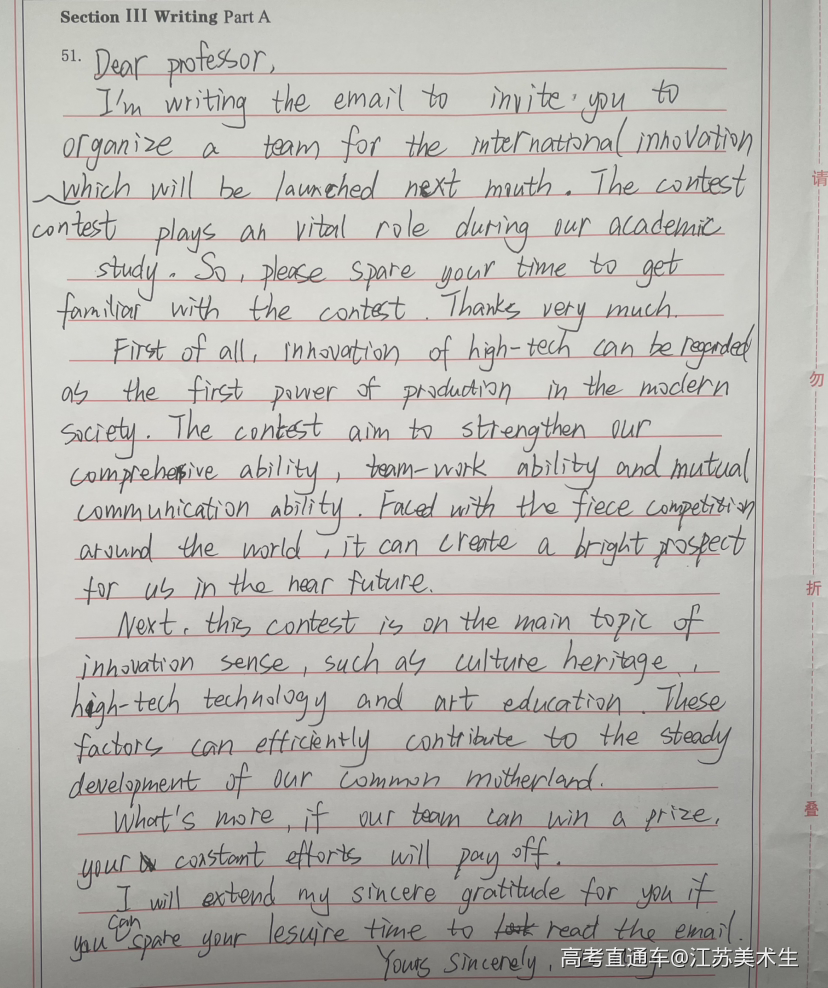 Section III Writing Part A
51. Dear professor,
I'm writing the email to invite you to
organize a team for the international innovation
which will be launched next month. The contest
contest plays an vital role during our academic
study. So, please spare your time to get
familiar with the contest. Thanks very much.
First of all, innovation of high-tech can be regarded
as the first power of production in the modern
society. The contest aim to strengthen our
comprehensive ability, team-work ability and mutual
communication ability. Faced with the fiece competition
around the world, it can create a bright prospect
for us in the near future.
Next, this contest is on the main topic of
innovation sense, such as culture heritage,
high-tech technology and art education. These
factors can efficiently contribute to the steady
development of our common motherland.
What's more, if our team can win a prize,
your constant efforts will pay off.
I will extend my sincere gratitude for you if
you can spare your lesuire time to read the email.
Yours sincerely,
高考直通车@江苏美术生
请
勿
折
叠